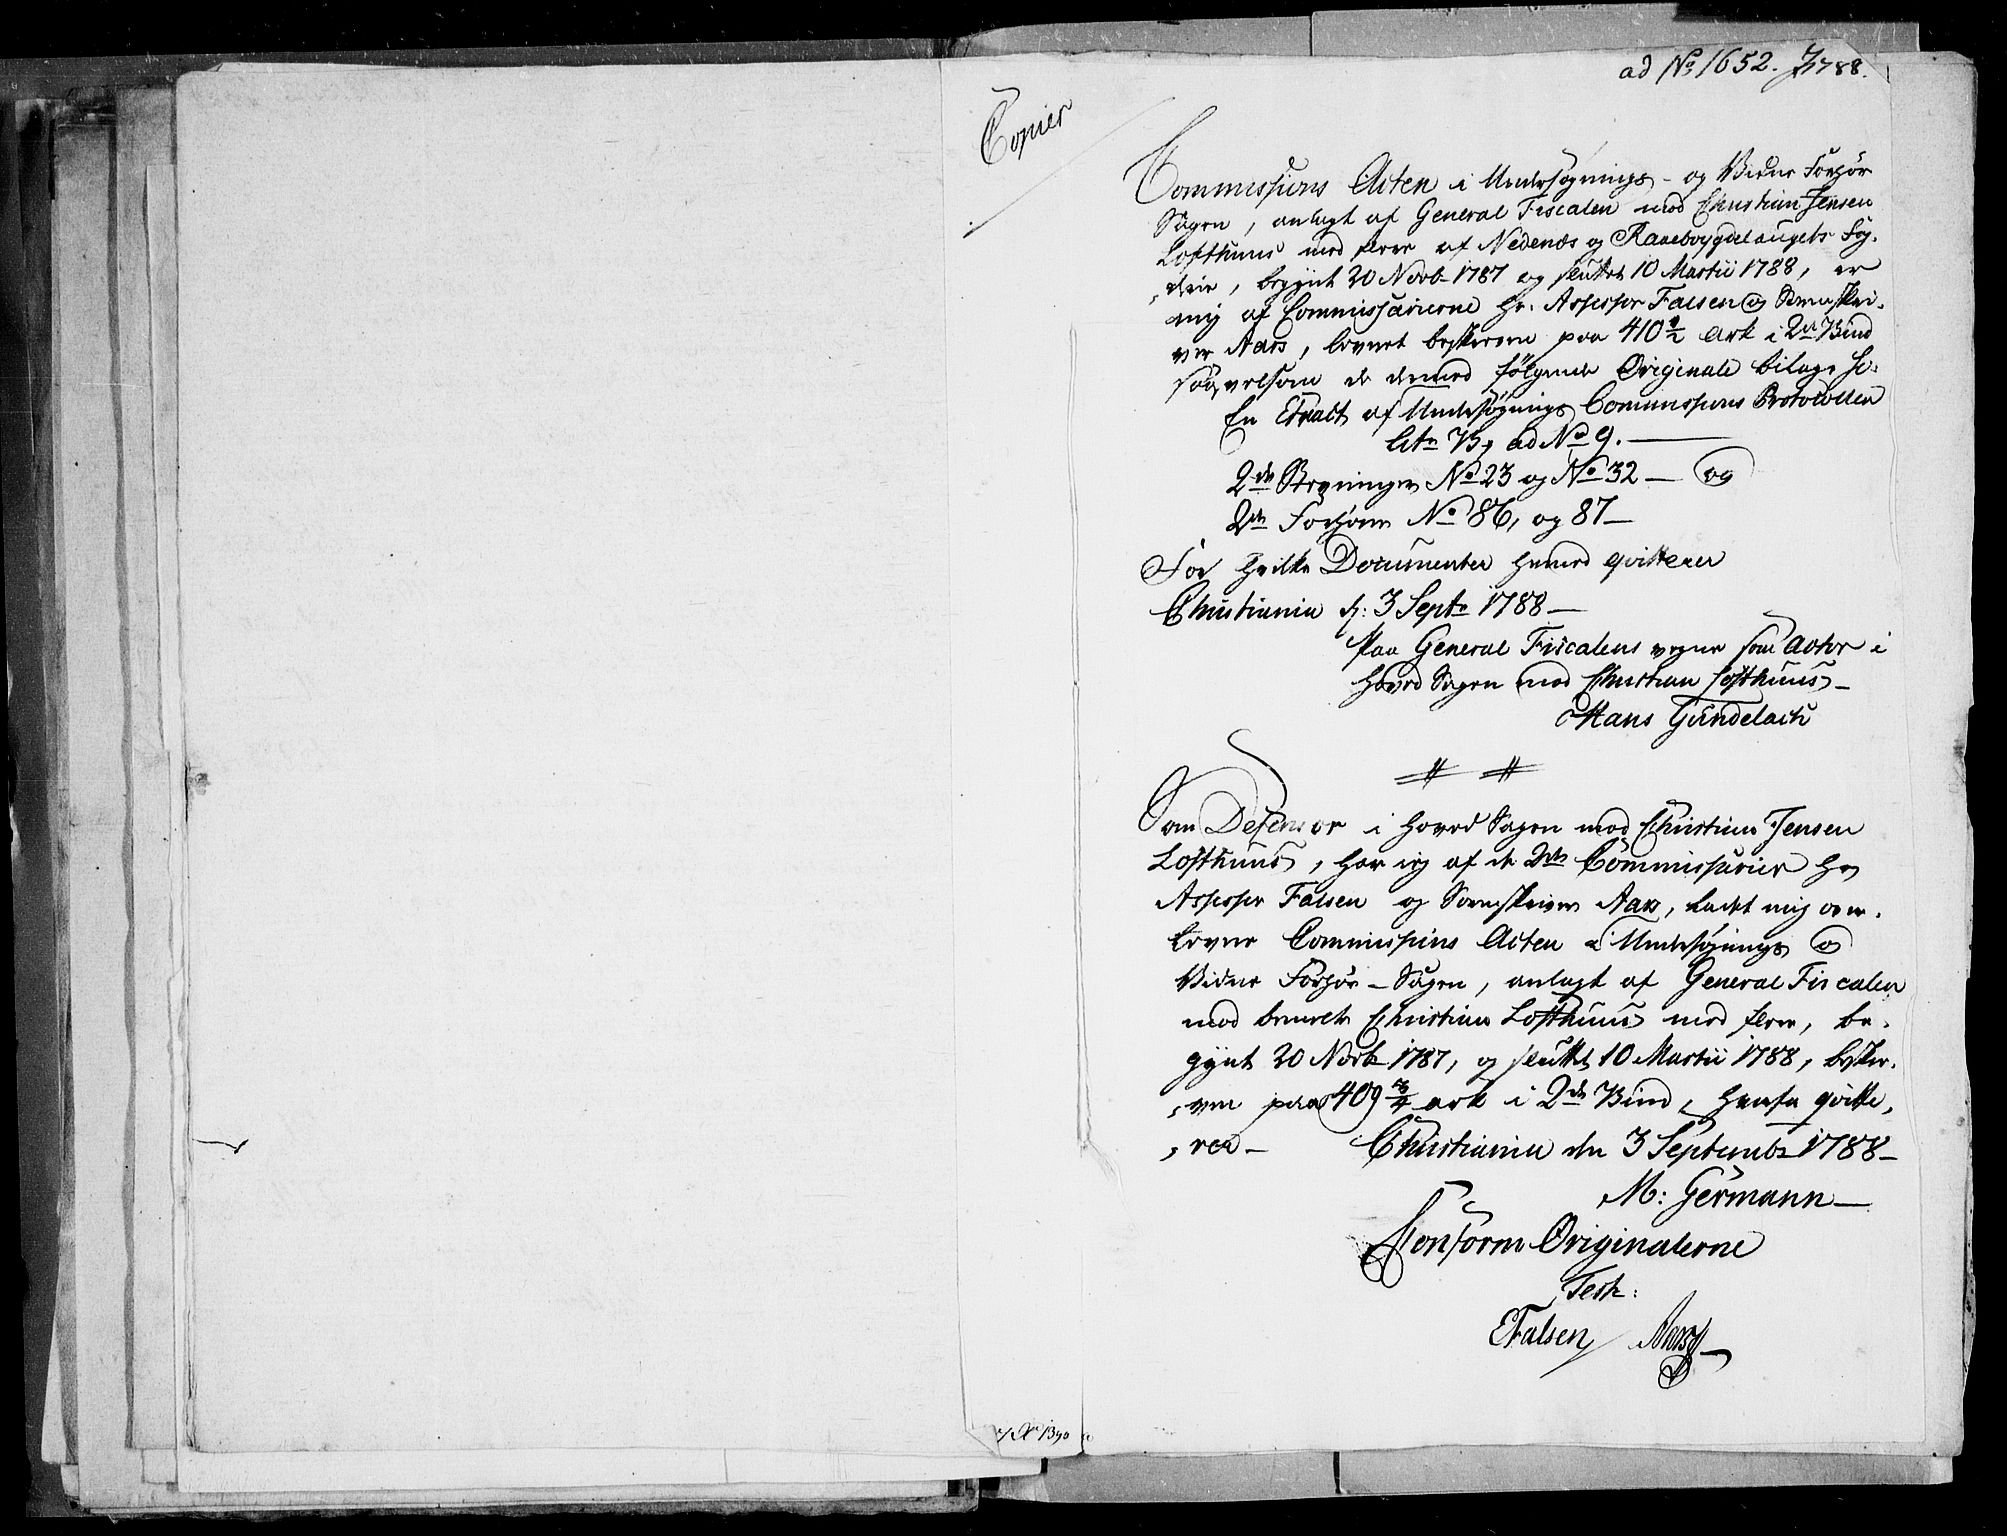 ad No 1652. 1788.
Copier
Commissions Acten i Undersøgnings- og Vidne Forhør
Sagen, anlagt af General Fiscalen mod Christian Jensen
Lofthuus med flere af Nedenæs og Raabøygdelaugets Fog-
derie, begynt 20 Novb. 1787 og sluttet 10 Martii 1788, er
mig af Commissairerne Hr. Assessor Falsen og Sorenskri-
ver Aars, levert beskreven paa 410 1/2 Ark i 2de Bind
saavelsom de dermed følgende Originale bilage
En Extract af Undersøgnings Commissions Protocollen
Litr B, ad No 9.
2de Beretninger No 23 og No 32 — og
2de Forhører No 86, og 87 —
For hvilke Documenter herved qvitterer
Christiania d: 3 Septr 1788 —
Paa General Fiscalens vegne som Actor i
Hoved Sagen mod Christian Lofthuus —
Hans Gundelach
Som Defensor i Hoved Sagen mod Christian Jensen
Lofthuus, har ieg af de 2de Commissairer Hr
Assessor Falsen og Sorenskriver Aars, ladet mig over-
levere Commissions Acten i Undersøgnings og
Vidne Forhør-Sagen, anlagt af General Fiscalen
mod bemeldte Christian Lofthuus med flere, be-
gynt 20 Novb. 1787, og sluttet 10 Martii 1788, beskre-
ven paa 409 3/4 ark i 2de Bind, herfor qvitte-
rer — Christiania den 3 Septembr 1788 —
M: Germann —
Conform Originalerne
Test:
E Falsen / Aars